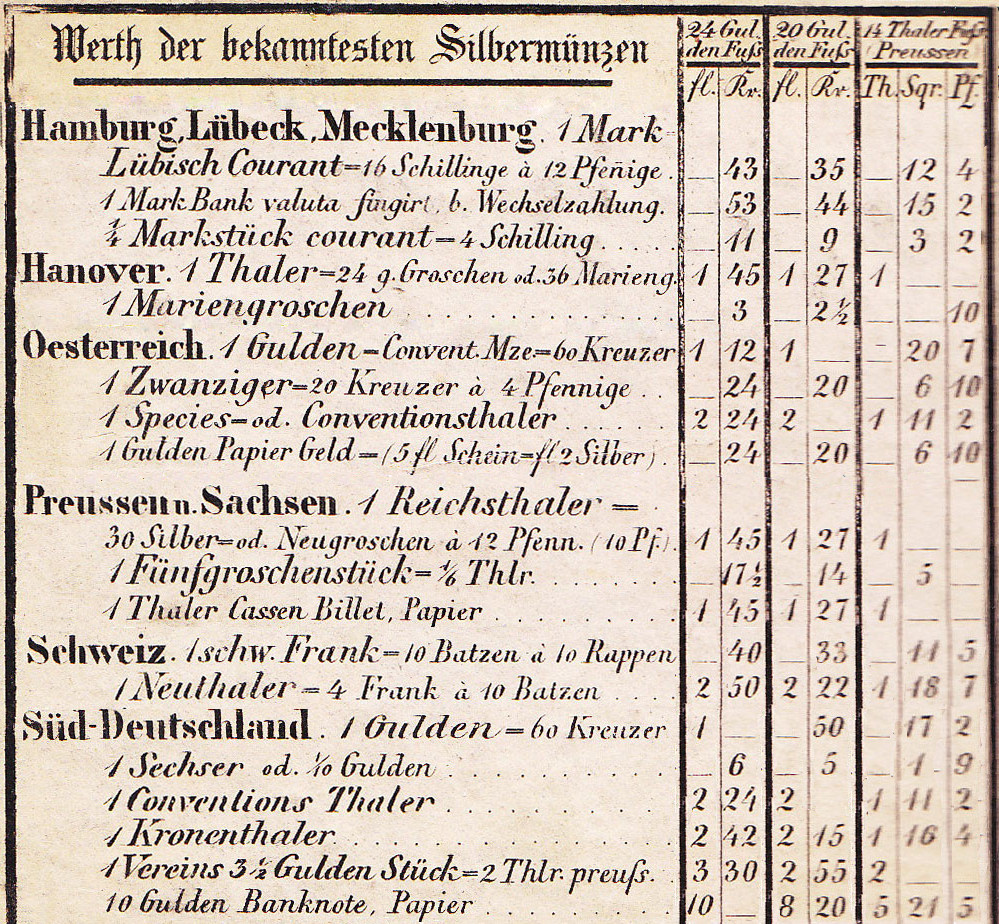 Werth der bekanntesten Silbermünzen
24 Gulden Fuſs 20 Gulden Fuſs 14 Thaler Fuſs Preussen
fl. Kr. fl. Kr. Th. Sgr. Pf.
Hamburg, Lübeck, Mecklenburg. 1 Mark
Lübisch Courant=16 Schillinge à 12 Pfenige. — 43 — 35 — 12 4
1 Mark Bank valuta fingirt, b. Wechselzahlung. — 53 — 44 — 15 2
Markstück courant=4 Schilling..... — 11 — 9 — 3 2
Hanover. 1 Thaler=24 g. Groschen od. 36 Marieng. 1 45 1 27 1 — —
1 Mariengroschen .......... — 3 — 2½ — — 10
Oesterreich. 1 Gulden=Convent. Mze=60 Kreuzer 1 12 1 — — 20 7
1 Zwanziger=20 Kreuzer à 4 Pfennige .. — 24 — 20 — 6 10
1 Species=od. Conventionsthaler ..... 2 24 2 — 1 11 2
1 Gulden Papier Geld=(5 fl Schein=fl 2 Silber). — 24 — 20 — 6 10
Preussen u. Sachsen. 1 Reichsthaler =
30 Silber=od. Neugroschen à 12 Pfenn. (10 Pf.). 1 45 1 27 1 — —
1 Fünfgroschenstück=⅙ Thlr. ...... — 17½ — 14 — 5 —
1 Thaler Cassen Billet, Papier ....... 1 45 1 27 1 — —
Schweiz. 1 schw. Frank=10 Batzen à 10 Rappen — 40 — 33 — 11 5
1 Neuthaler=4 Frank à 10 Batzen .... 2 50 2 22 1 18 7
Süd-Deutschland. 1 Gulden=60 Kreuzer 1 — — 50 — 17 2
1 Sechser od. 1/10 Gulden ......... — 6 — 5 — 1 9
1 Conventions Thaler ......... 2 24 2 1 11 2
1 Kronenthaler ............. 2 42 2 15 1 16 4
1 Vereins 3½ Gulden Stück=2 Thlr. preuſs. 3 30 2 55 2 — —
10 Gulden Banknote, Papier ....... 10 — 8 20 5 21 5